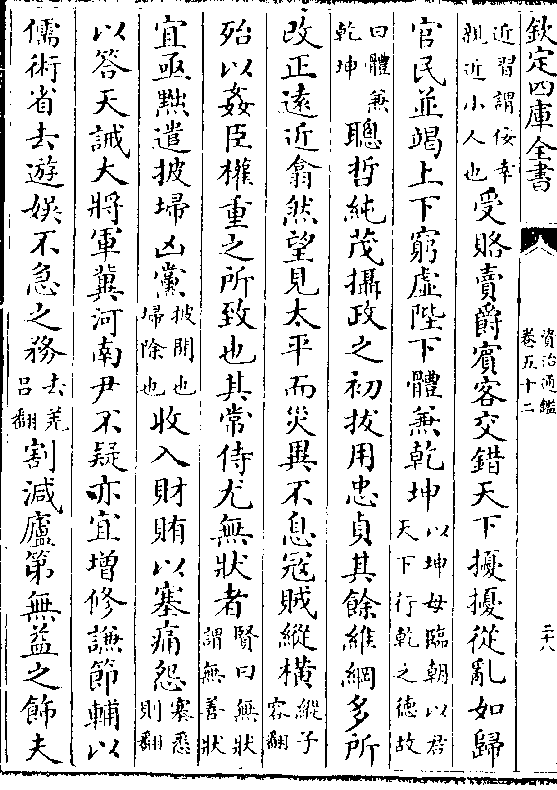 欽定四庫全書
資治通鑑
卷五十二
二十八
近習謂佞幸
親近小人也
受賂賣爵賓客交錯天下擾擾從亂如歸
官民並竭上下窮虛陛下體兼乾坤
以坤母臨朝以君
天下行乾之德故
曰體兼
乾坤
聰哲純茂攝政之初拔用忠貞其餘維綱多所
改正遠近翕然望見太平而災異不息冦賊縱橫
縱子
容翻
殆以姦臣權重之所致也其常侍尤無狀者
賢曰無狀
謂無善狀
宜亟黜遣披埽凶黨
披開也
埽除也
收入財賄以塞痛怨
塞悉
則翻
以答天誡大將軍冀河南尹不疑亦宜增修謙節輔以
儒術省去遊娛不急之務
去羌
吕翻
割減廬第無益之飾夫